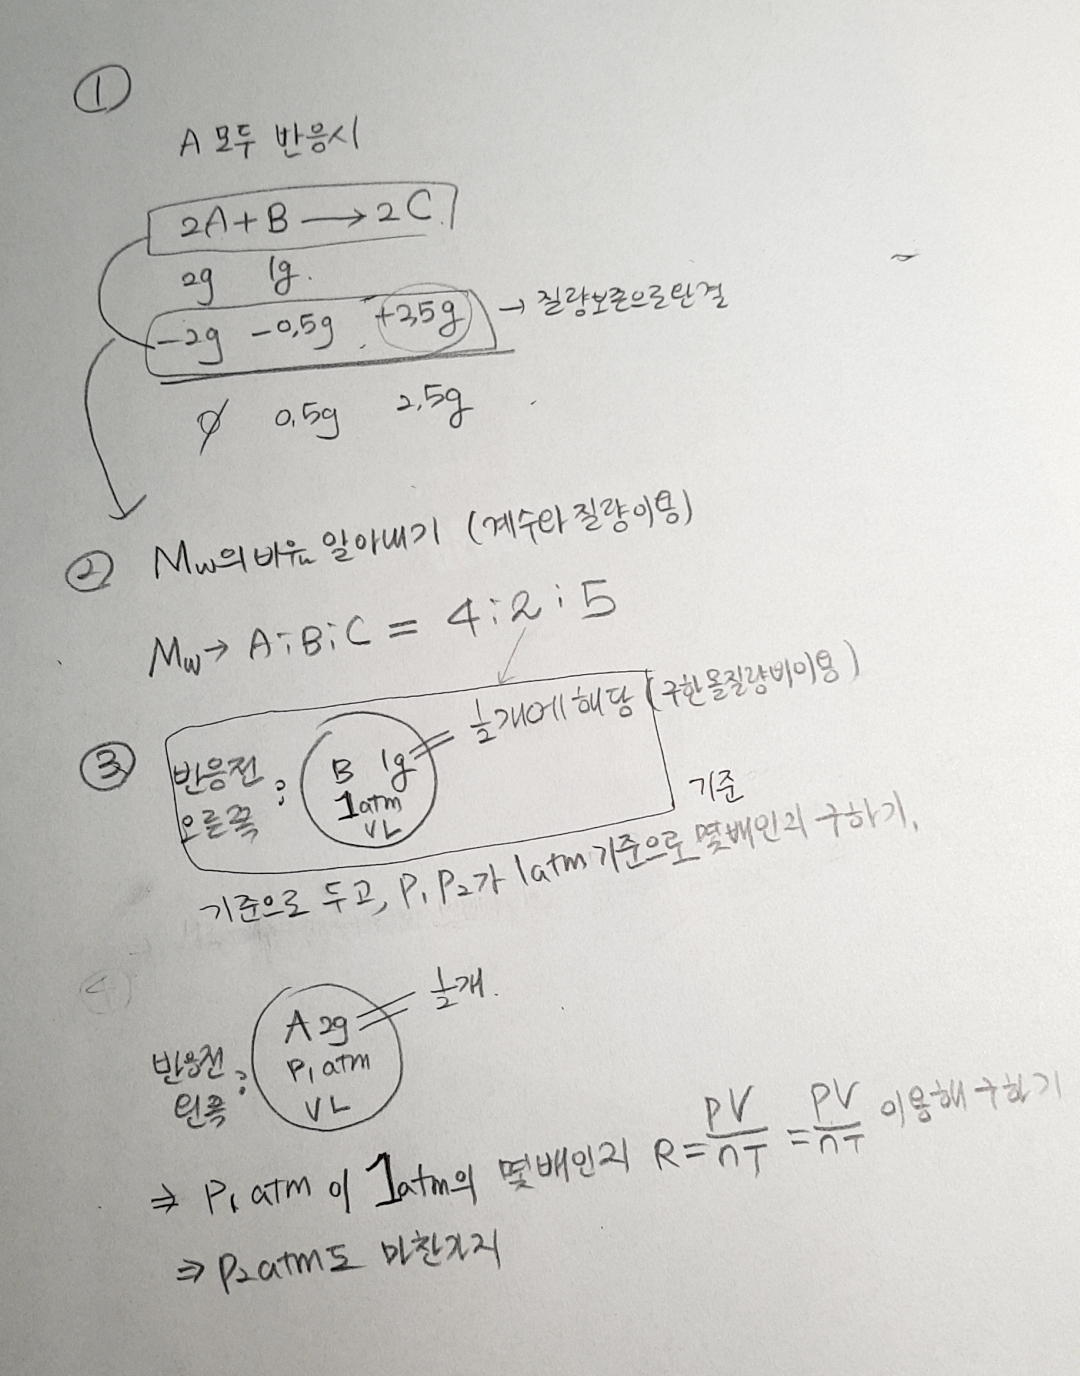 ①
A 모두 반응시
2A+B → 2C
2g 1g.
-2g -0.5g +2.5g → 질량보존으로완결
0 0.5g 2.5g
② Mw의 비율 알아내기 (계수와 질량이용)
Mw→ A:B:C = 4:2:5
③ 반응전 오른쪽 : B 1g 1atm VL = 1/2개에 해당 (구한몰질량비이용)
기준
기준으로 두고, P1 P2가 1atm 기준으로 몇배인지 구하기.
④
반응전 왼쪽 : A 2g P1 atm VL = 1/2개.
⇒ P1 atm 이 1atm의 몇배인지 R = PV/nT = PV/nT 이용해 구하기
⇒ P2 atm도 마찬가지